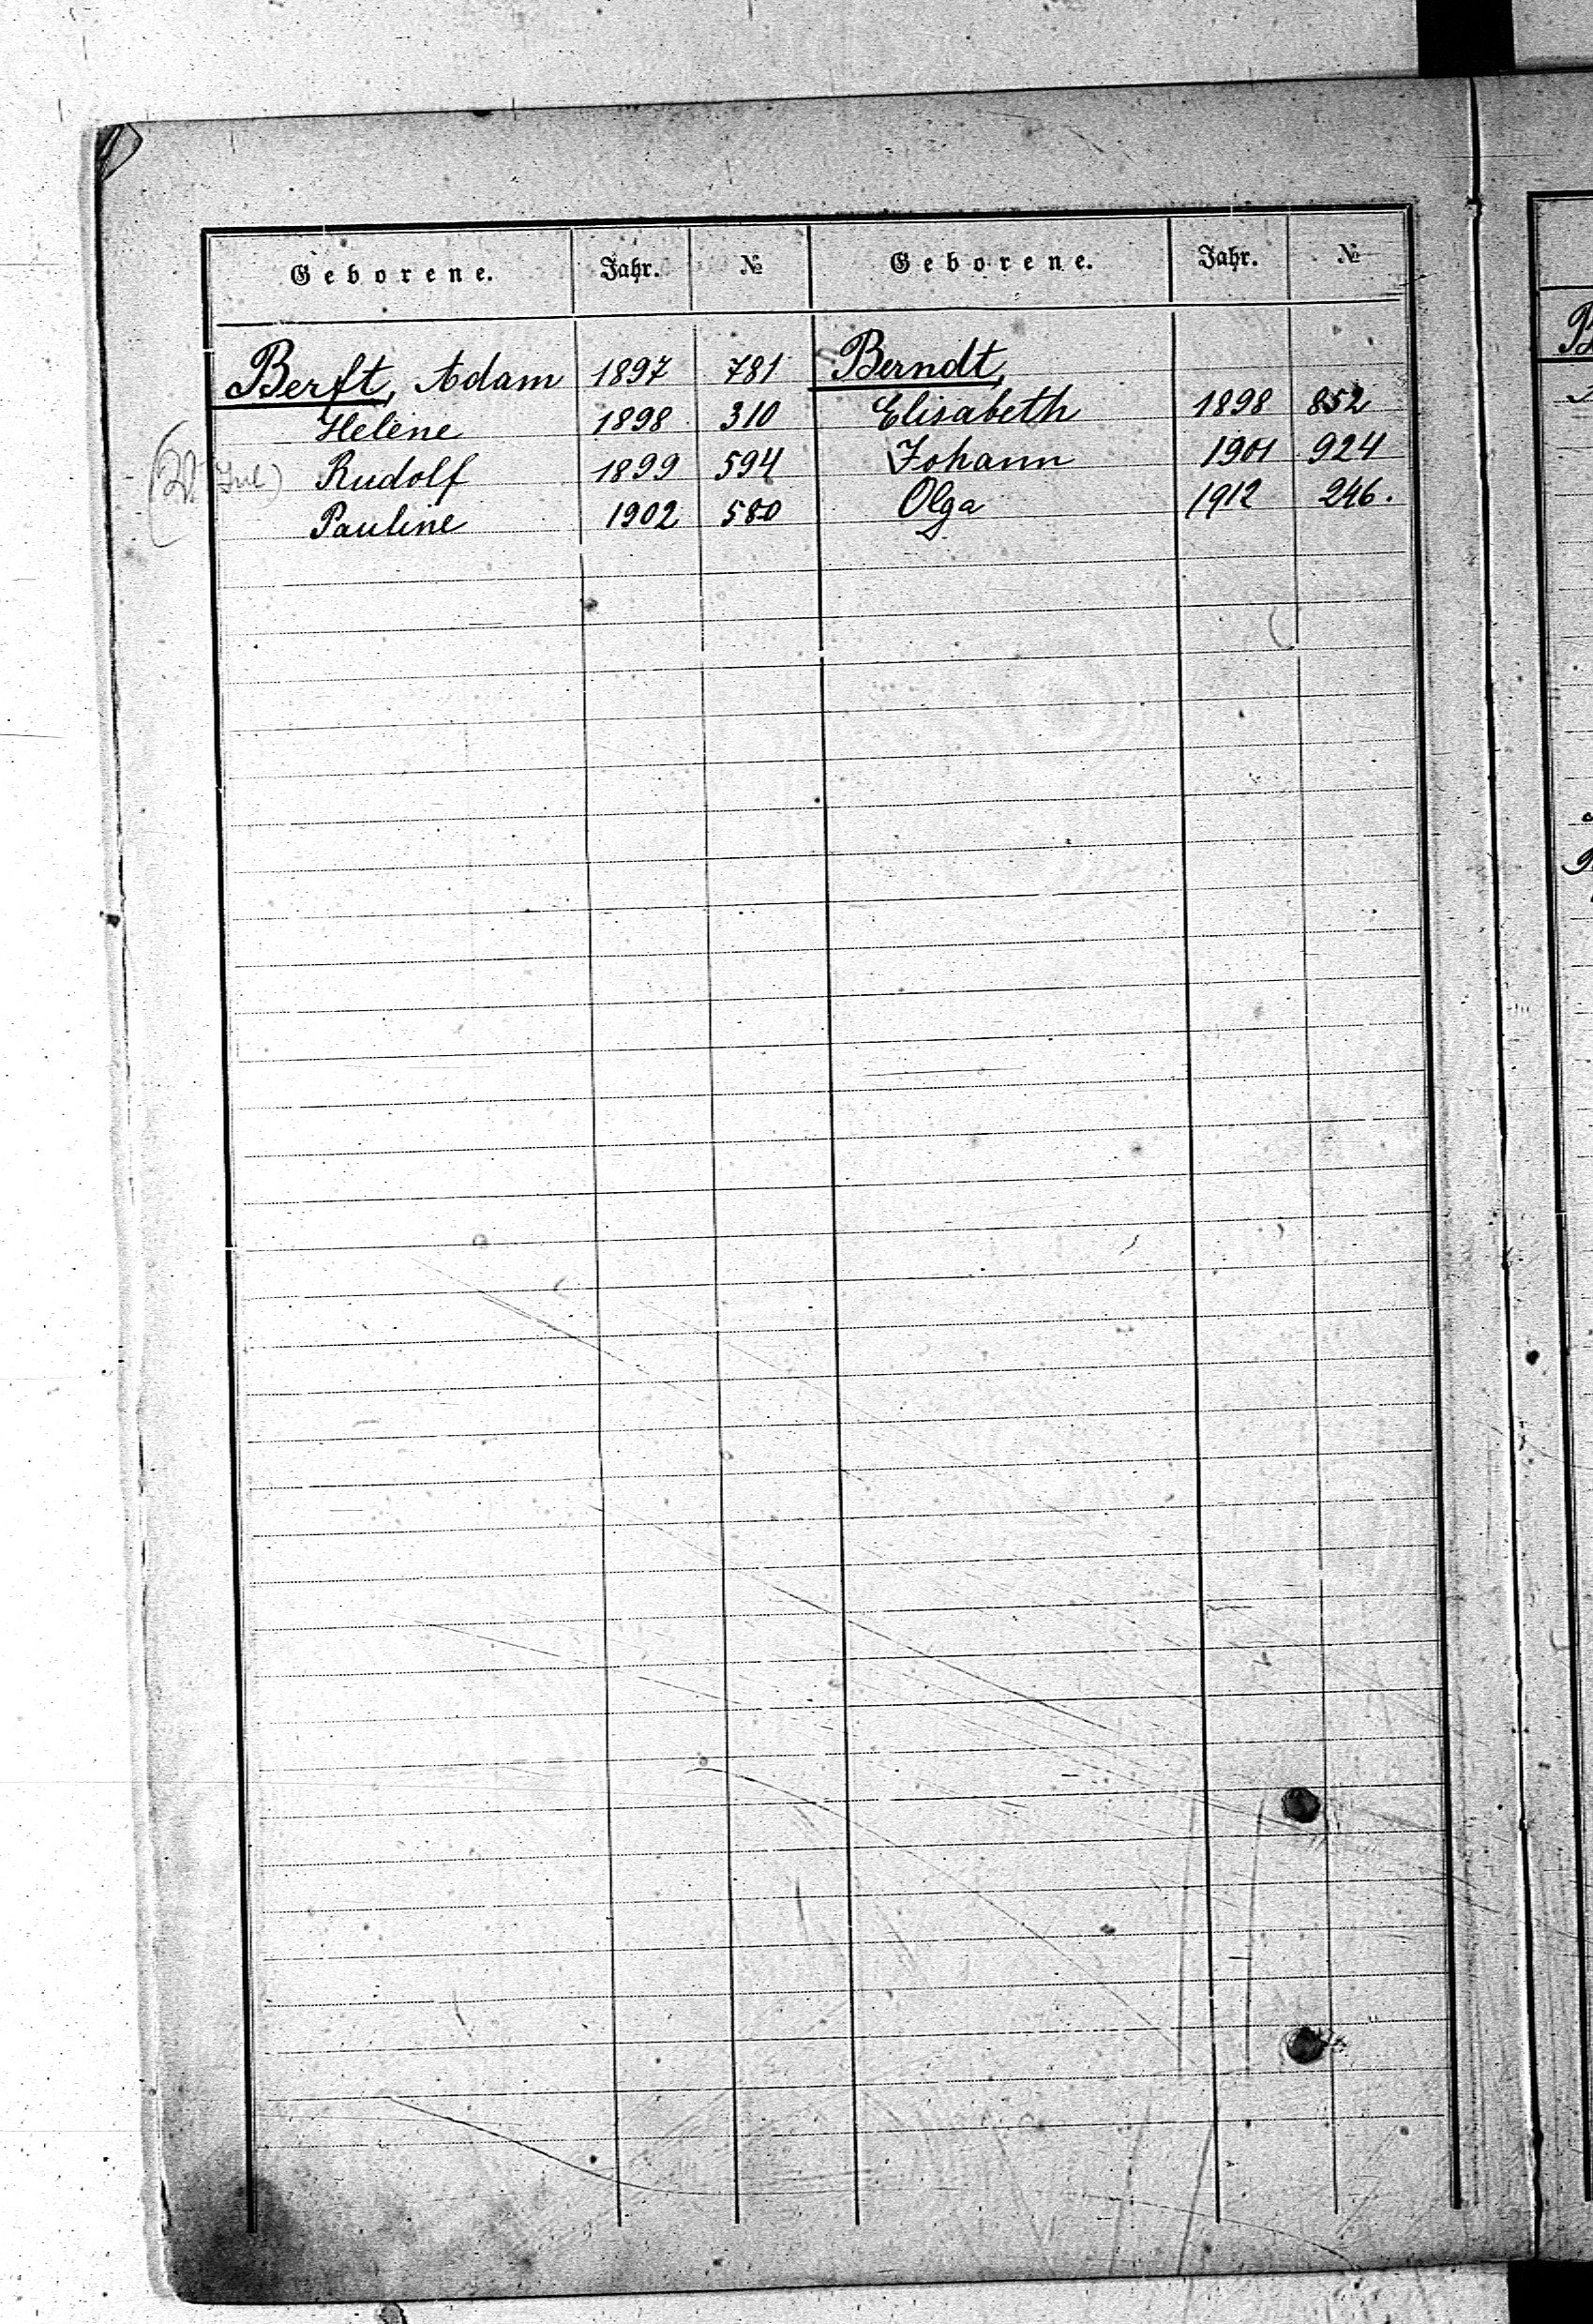 Geborene. Jahr. № Geborene. Jahr. №
Berft, Adam 1897 781
Helene 1898 310
Rudolf 1899 594
Pauline 1902 580
Berndt,
Elisabeth 1898 852
Johann 1901 924
Olga 1912 246.